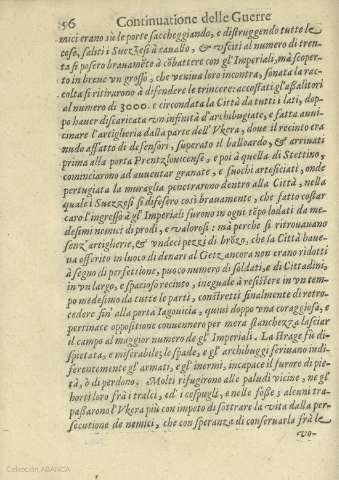 56 Continuatione delle Guerre
mici erano sù le porte saccheggiando, e distruggendo tutte le
cose, saliti i Suezzesi à cauallo, & vsciti al numero di tren-
ta si posero brauamẽte à cõbattere con gl'Imperiali, mà scoper-
to in breue vn grosso, che veniua loro incontra, sonata la rac-
colta si ritirarono à defendere le trincere: accostati gl'assalitori
al numero di 3000. e circondata la Città da tutti i lati, dop-
po hauer discaricata vn infinità d'archibugiate, e fatta auui-
cinare l'artiglieria dalla parte dell'Vkera, doue il recinto era
nudo affatto di defensori, superato il balloardo, & arriuati
prima alla porta Prentzlouicense, e poi à quella di Stettino,
cominciarono ad auuentar granate, e fuochi arteficiati, onde
pertugiata la muraglia penetrarono dentro alla Città, nella
quale i Suezzesi si difesero così brauamente, che fatto costar
caro l'ingresso à gl'Imperiali furono in ogni tẽpo lodati da me-
desimi nemici di prodi, e valorosi: mà perche si ritrouauano
senz'artiglerie, & vndeci pezzi di brõzo, che la Città haue-
ua offerito in luogo di denari al Getz ancora non erano ridotti
à segno di perfettione, puoco numero di soldati, e di Cittadini,
in vn largo, e spacioso recinto, ineguale à resistere in vn tem-
po medesimo da tutte le parti, constretti finalmente di retro-
cedere fin' alla porta Iagouicia, quiui doppo vna coraggiosa, e
pertinace oppositione conuennero per mera stanchezza lasciar
il campo al maggior numero de gl'Imperiali. La strage fù di-
spietata, e miserabile; le spade, e gl'archibuggi feriuano indif-
ferentemente gl'armati, e gl'inermi, incapace il furore di pie-
tà, ò di perdono. Molti rifugirono alle paludi vicine, ne gl'
horti loro frà i tralci, ed i cespugli, e nelle fosse; alcuni tra-
passarono l'Vkera più con impeto di sottrare la vita dalla per-
secutione de nemici, che con speranza di conseruarla frà le
vo-
Colección ABANCA